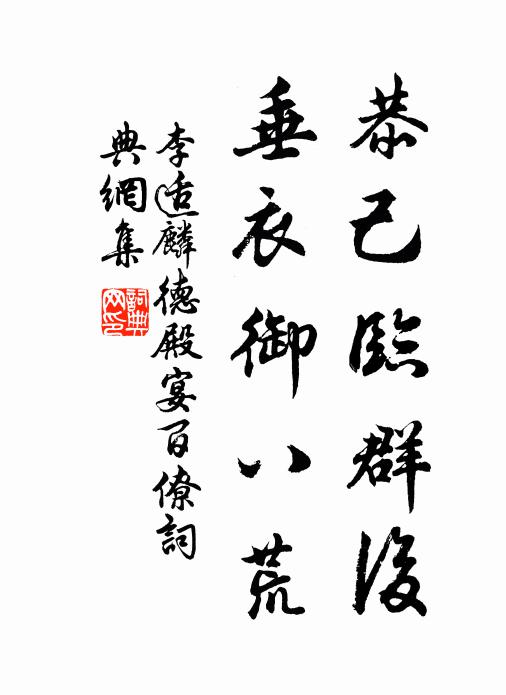 恭己臨群後
垂衣御八荒
李适麟德殿宴百僚詞
典網集
詞典網印